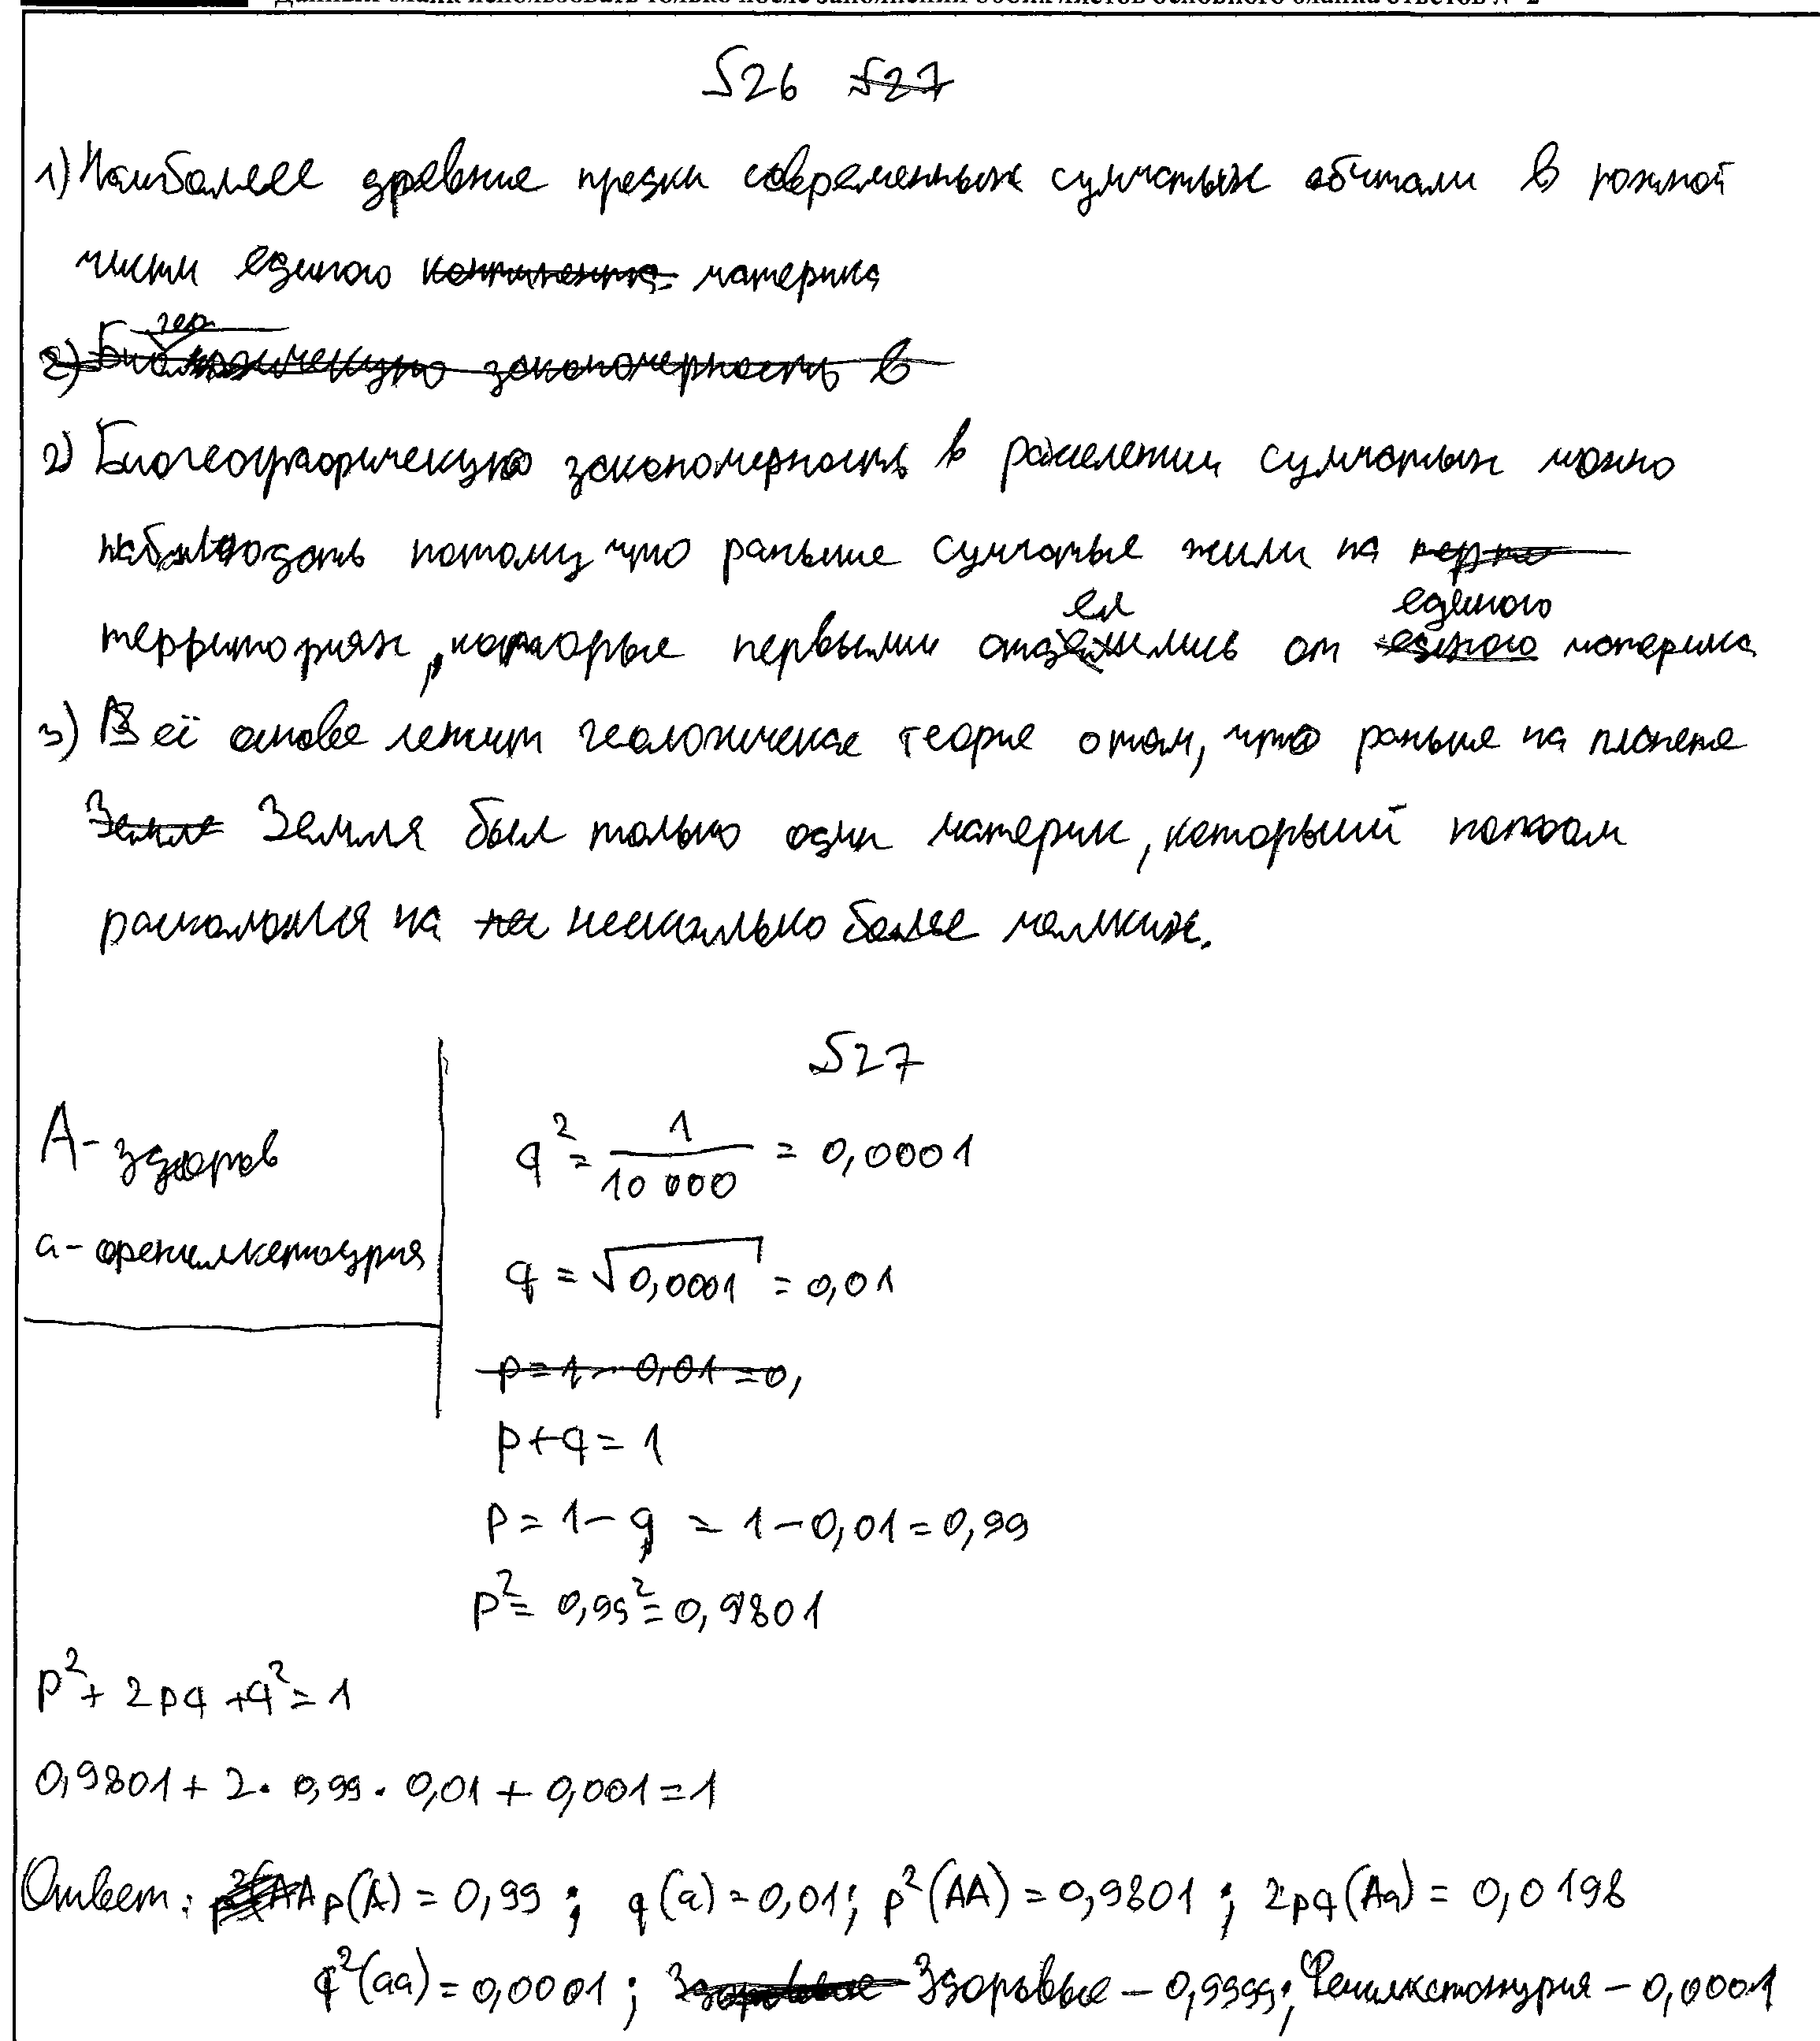 Данный бланк использовать только после заполнения обоих листов основного бланка ответов № 2
№26 ~~№27~~
1) Наиболее древние предки современных сумчатых обитали в южной
части единого ~~континента~~ материка
~~2) Биогеографическую закономерность в~~
2) Биогеографическую закономерность в расселении сумчатых можно
наблюдать потому что раньше сумчатые жили на
территориях, которые первыми отделились от единого материка
3) В её основе лежит геологическая теория о том, что раньше на планете
~~Земле~~ Земля был только один материк, который потом
раскололся на ~~не~~ несколько более мелких.
№27
A - здоров
a - фенилкетонурия
q² = 1/10 000 = 0,0001
q = √0,0001 = 0,01
~~p = 1 - 0,01 = 0,~~
p+q = 1
p = 1 - q = 1 - 0,01 = 0,99
p² = 0,99² = 0,9801
p² + 2pq + q² = 1
0,9801 + 2 · 0,99 · 0,01 + 0,001 = 1
Ответ: p(A) = 0,99 ; q(a) = 0,01; p²(AA) = 0,9801 ; 2pq(Aa) = 0,0198
q²(aa) = 0,0001 ; ~~Здоровые~~ Здоровые - 0,9999; Фенилкетонурия - 0,0001